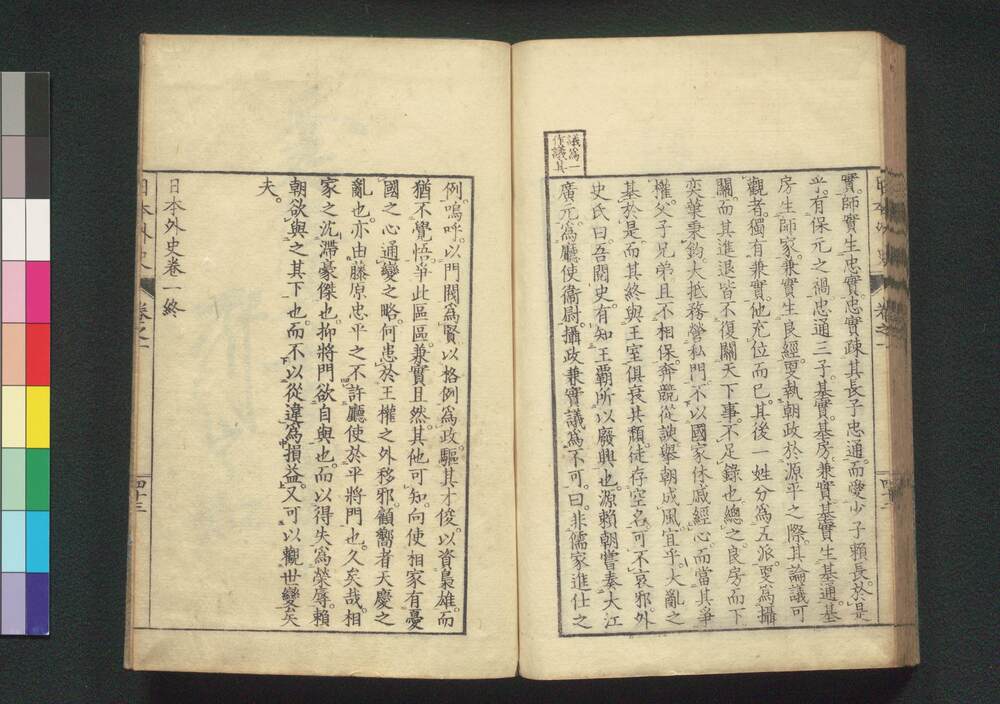 議爲一
作議其
實。師實生忠實。忠實疎其長子忠通。而愛少子賴長。於是
乎。有保元之禍。忠通三子。基實。基房。兼實。基實生基通。基
房生師家。兼實生良經。更執朝政於源平之際。其論議可
觀者。獨有兼實。他充位而已。其後一姓分爲五派。更爲攝
關。而其進退皆不復關天下事。不足錄也。總之。良房而下
奕葉秉鈞。大抵務營私門。不以國家休戚經心。而當其爭
權。父子兄弟。且不相保。奔競從諛。舉朝成風。宜乎。大亂之
基於是。而其終與王室俱衰共頽。徒存空名。可不哀邪。外
史氏曰。吾閱史。有知王霸所以廢興也。源賴朝嘗奏大江
廣元。爲廳使衞尉。攝政兼實議爲不可。曰。非儒家進仕之
日本外史 卷之一 四十三
例。嗚呼。以門閥爲賢。以格例爲政。驅其才俊。以資梟雄。而
猶不覺悟。爭此區區。兼實且然。其他可知。向使相家有憂
國之心。通變之略。何患於王權之外移邪。顧嚮者天慶之
亂也。亦由藤原忠平之不許廳使於平將門也。久矣哉。相
家之沈滯豪傑也。抑將門欲自與也。而以得失爲榮辱。賴
朝欲與之其下也。而不以從違爲損益。又可以觀世變矣
夫。
日本外史卷一終